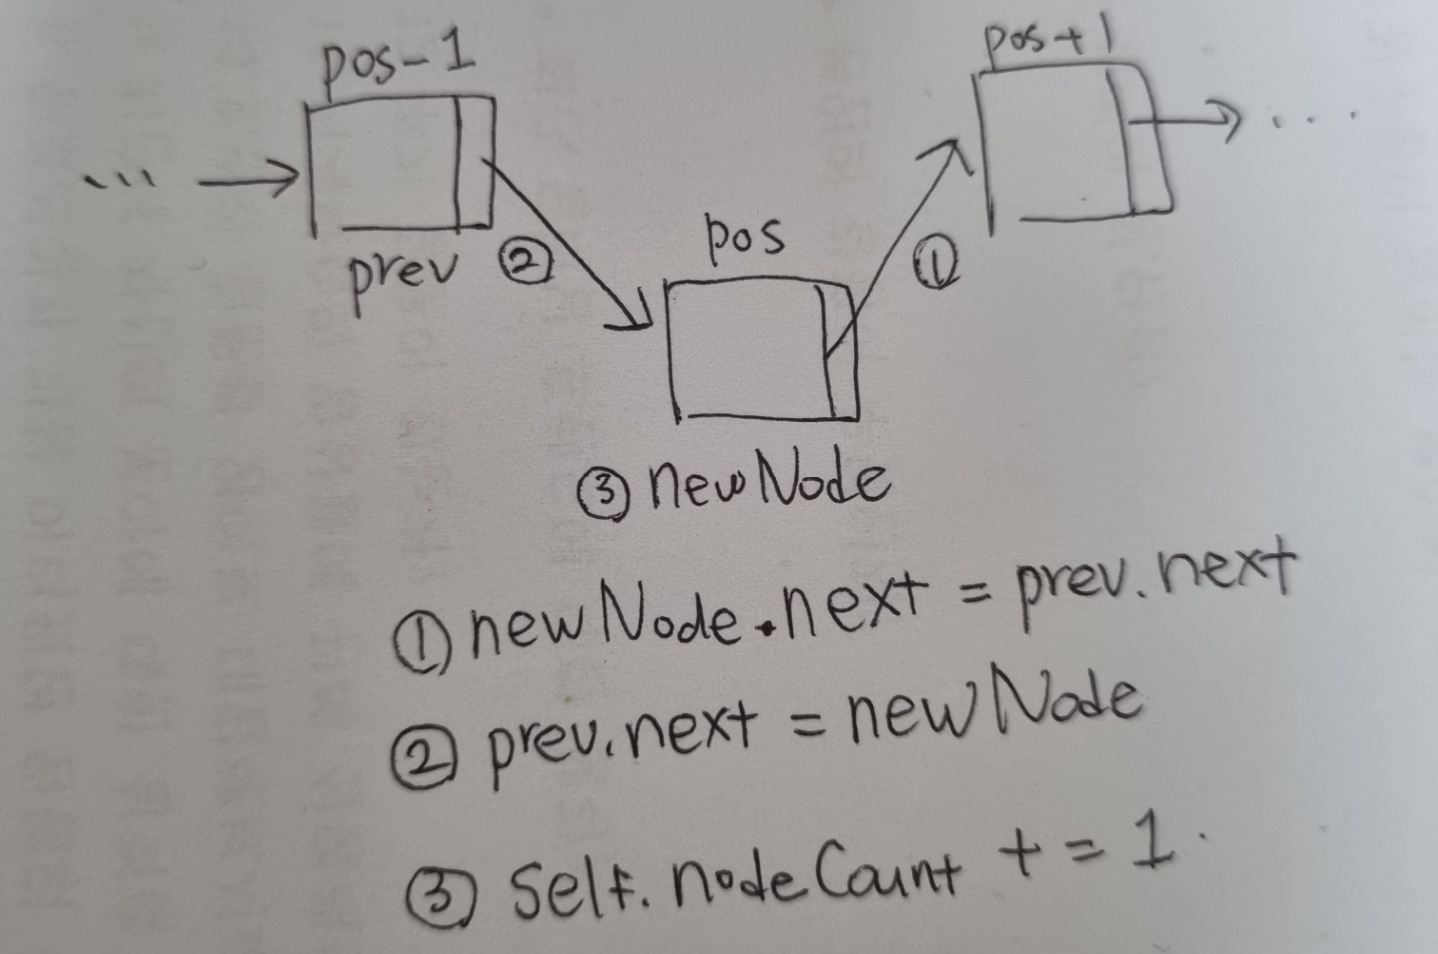 pos-1
pos+1
... 
...
prev
②
pos
①
③ newNode
① newNode.next = prev.next
② prev.next = newNode
③ self.nodeCount += 1.